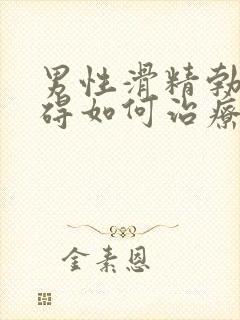 男性滑精勃
碍如何治療
金素恩